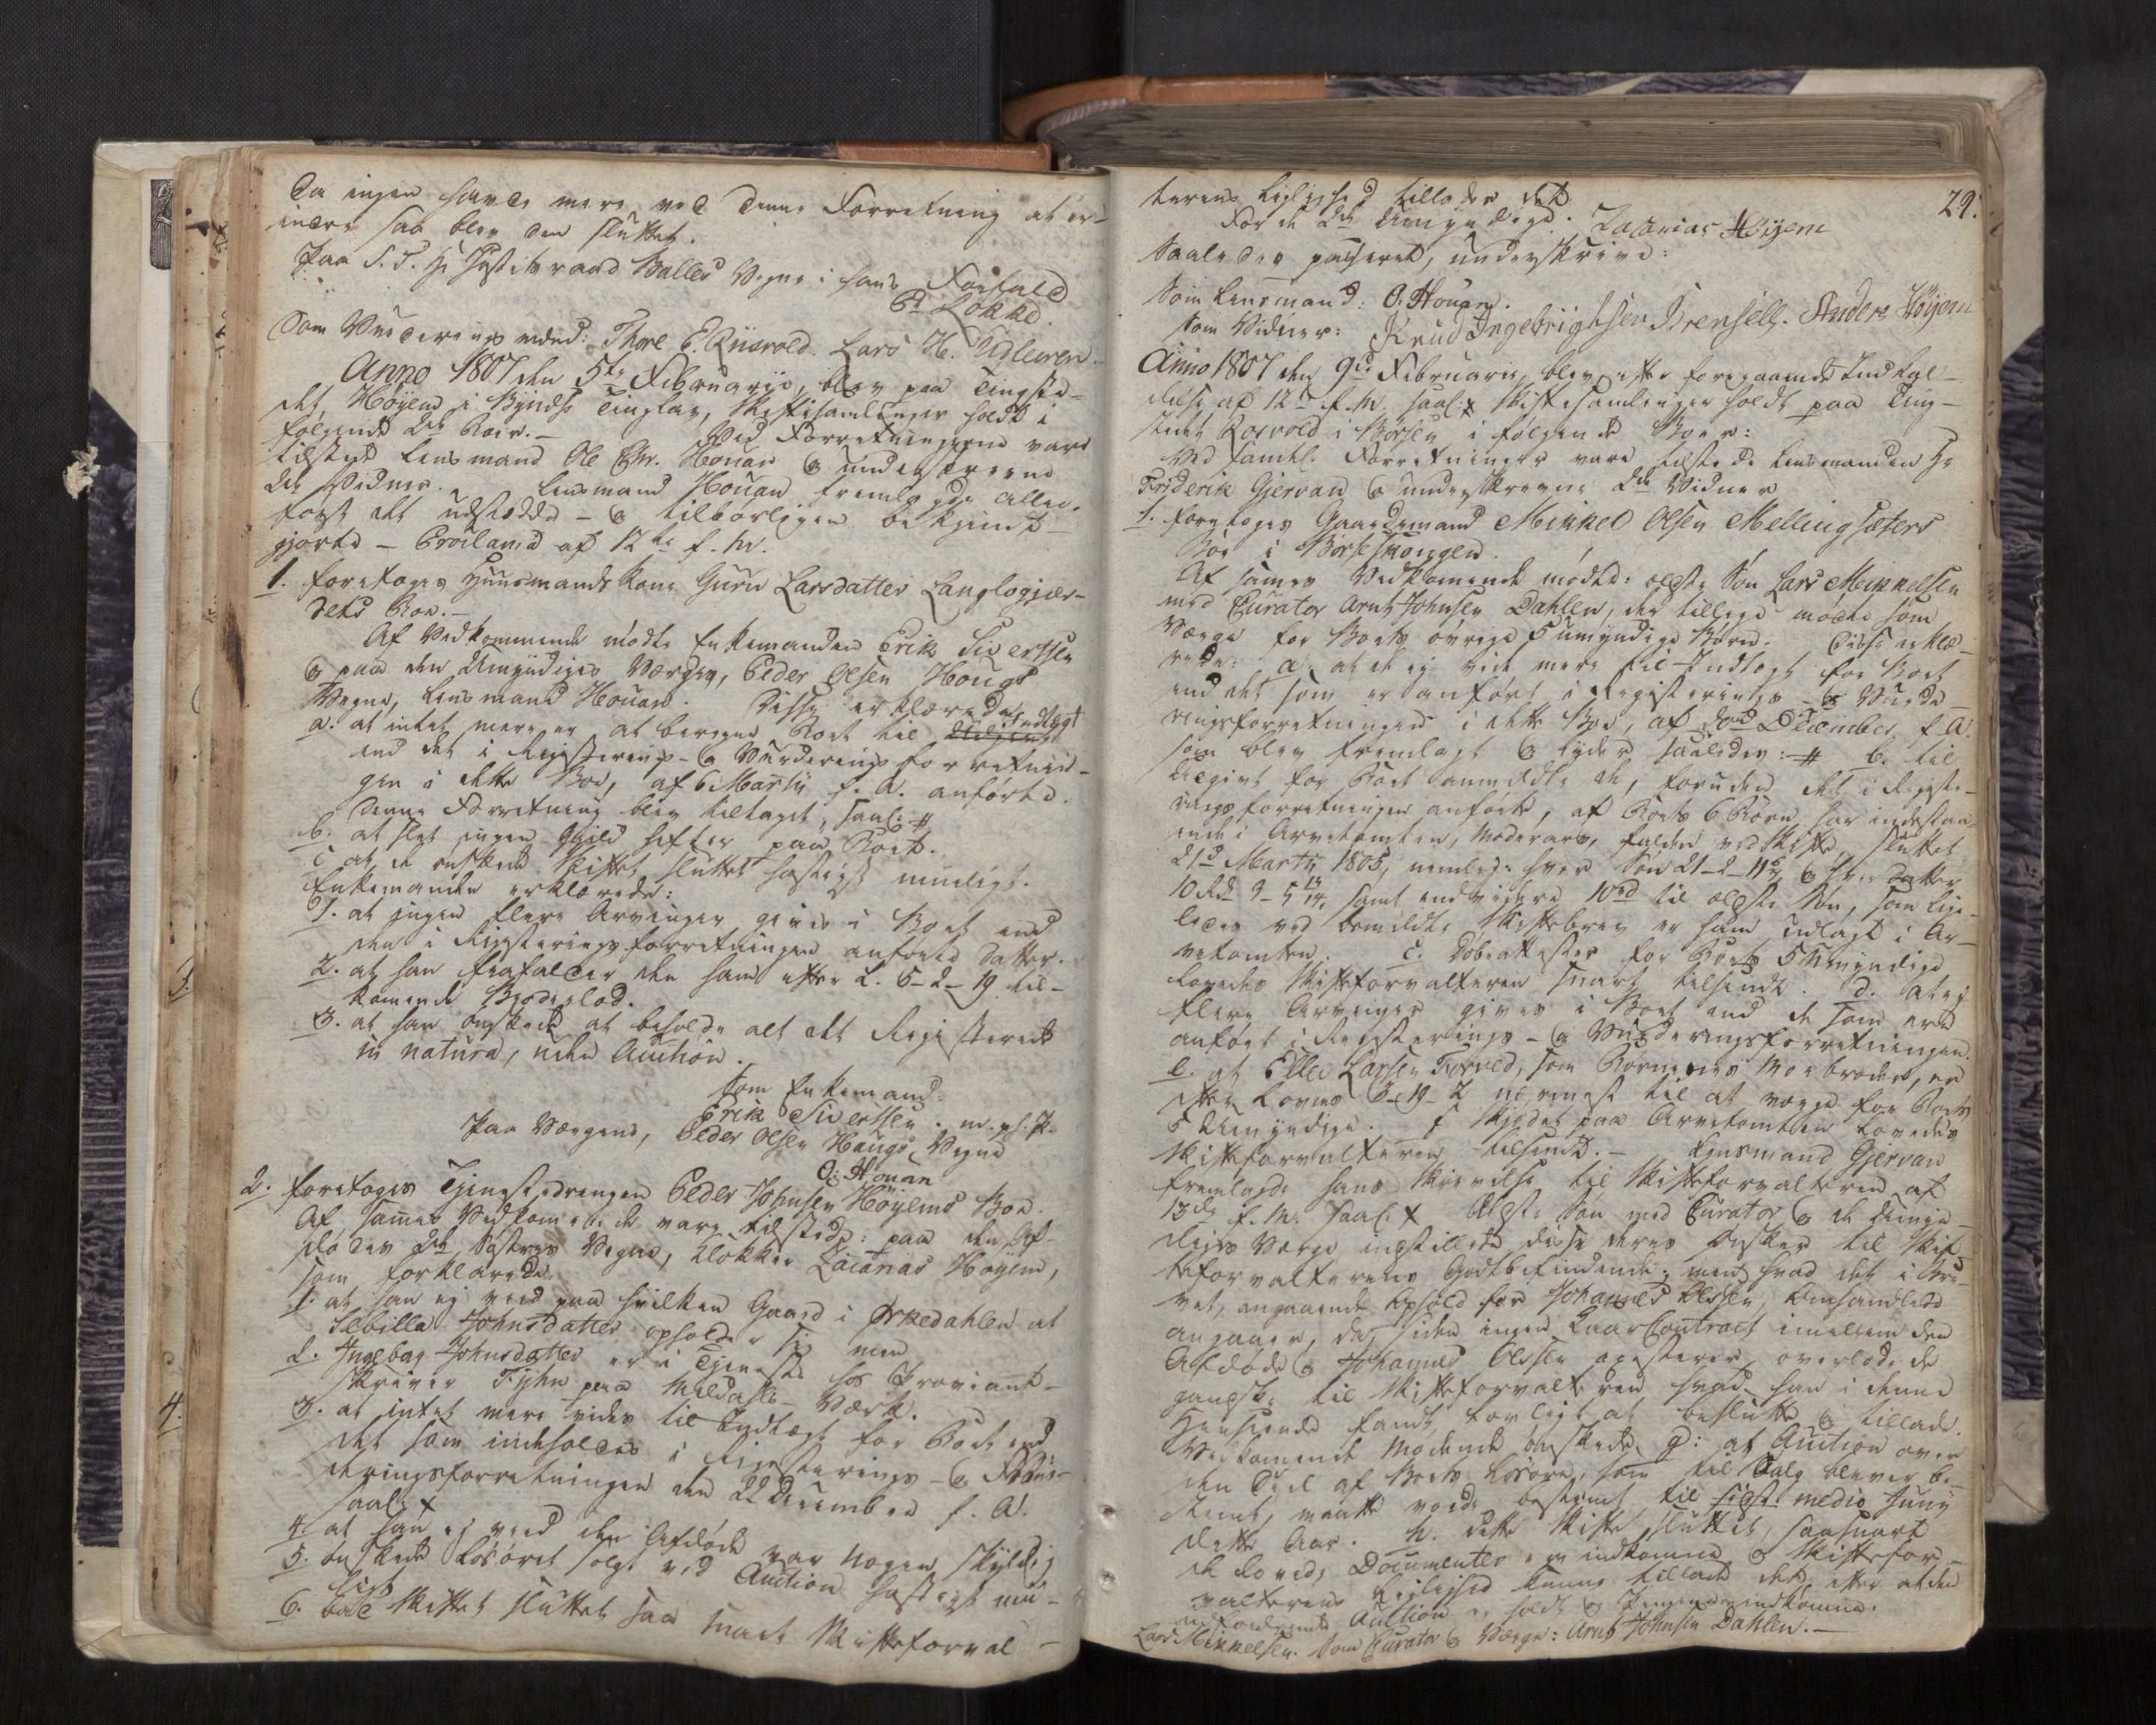 Da ingen havde mere ved denne Forretning at er-
indre saa blev den sluttet.
Paa S. T. Hr Justitsraad Balles Vegne i hans Forfald
Løkke.
Som Vurderingsmænd: Thore E. Lars H. Udleiren.
Anno 1807 den 5te Februarii, blev paa Tingste-
det, Høyem i Byndss Tinglav, Skiftesamlinger holdt i
følgende 2de Boer.-
Ved Forretningerne vare
tilstede Lensmand Ole Chr. Houan & underskrevne
2de Vidner. Lensmand Houan fremlagde aller-
først det udstædde - & tilbørligen bekjendt-
gjorte - Proclama af 12te f. M.
1. foretoges Huusmandskone Guru Larsdatter Langlogjær-
dets Boe.-
Af Vedkommende mødte Enkemanden Erik Sivertsen
& paa den Umyndiges Værges, Peder Olsen Hougs
Vegne, Lensmand Houan. Disse erklærede
a. at intet mere er at beregne Boet til Indtægt
end det i Registerings- & Vurderingsforretnin-
gen i dette Boe, af 6 Martii f. A. anførte.
Denne Forretning blev tiltaget, saal: #
b. at slet ingen Gield hefter paa Boet.
c at de ønskede Skiftet sluttet hastigst mueligt.
Enkemanden erklærede:
1. at ingen flere Arvinger gives i Boet end
den i Registeringsforretningen anførte Datter.
2. at han frafalder den ham efter L. 5-2-19 til-
komende Broderlod.
3. at han ønskede at beholde alt det Registerede
in natura, uden Auction.
Som Enkemand:
Erik Sivertsen. m. p. P.
Paa Værgens, Peder Olsen Haugs Vegne
O: Houan
2. foretoges Tjenestedrengen Peder Johnsen Høyems Boe.
Af sammes Vedkomende vare tilstede: paa den Af-
dødes 2de Søstres Vegne, Klokker Zacarias Høyem,
som forklarede:
1. at han ej veed paa hvilken Gaard i Orkedahlen at
Sibilla Johnsdatter opholder sig men
2. Ingebor Johnsdatter er i Tjeneste hos Proviant-
skriver Fyhn paa Meldahls Værk.
3. at intet mere vides til Indtægt for Boet end
det som indeholdes i Registerings- & Vur-
deringsforretningen den 22 December f. A.
saal: x
4. at han ej veed den Afdøde var nogen skyldig
5. ønskede Løsøret solgt ved Auction hastigst mu-
ligt
6. bad Skiftet sluttet saa snart Skifteforval-
29.
terens Leilighed tillader det
For de 2de Umyndige: Zacarias Høyem
Saaledes passeret, underskrive:
Som Lensmand: O. Houan.
Som Vidner: Knud Ingebrigtsen Anders Höyem
Anno 1807 den 9de Februarii, blev efter foregaaende Indkal-
delse af 12te f. M. saal: x Skiftesamlinger holdt paa Ting-
stuet Rosvold i Børsen i følgende Boer:
Ved samtl. Forretninger vare tilstede Lensmanden Hr
Friderik Gjervan & underskrevne 2de Vidner
1. foretoges Gaardmand Mikkel Olsen Mellingsæters
Boe i Børseskougen.
Af sammes Vedkomende mødte: ældste Søn Lars Mikkelsen
med Curator Arnt Johnsen Dahlen, der tillige mødte som
Værge for Boets øvrige 5 umyndige Børn. Disse erklæ-
rede: a. at de ej vide mere til Indtægt for Boet
end det som er anført i Registerings- & Vurde-
ringsforretningen i dette Boe, af December f. A.
som blev fremlagt & lyder saaledes: # b. til
Udgivt for Boet anmeldte de, foruden det i Registe-
ringsforretningen anførte, at Boets 6 Børn har indestaa-
ende i Arvetomten, Møderarv, falden ved Skifte, sluttet
21d Martii 1805, nemlig: hver Søn 21-2-11 & hver Datter
10 Rd 3-5 samt endvidere 10rd til ældste Søn, som lige-
ledes ved bemeldte Skiftebrev er ham udlagt i Ar-
vetomten. c. Dobeattester for Boets 5 Umyndige
lovedes Skifteforvalteren snart tilsendt. d. at ej
flere Arvinger gives i Boet end de som ere
anført i Registerings- & Vurderingsforretningen.
e. at Elling Larsen som Børnenes Morbroder, er
efter Lovens 3-19-2 nærmest til at være Værge for Boets
5 Umyndige. f Skjødet paa Arvetomten lovedes
Skifteforvalteren tilsendt.- Lensmand Gjervan
fremlagde hans Skrivelse til Skifteforvalteren af
13de f. M. saal: x Ældste Søn med Curator & de Umyn-
diges Værge indstillede disse deres Ønsker til Skif-
teforvalterens Godtbefindende; men hvad det i Bre-
vet, angaaende Ophold for Johannes Olssen, omhandlede
angaaer, da, siden ingen Kaar Contract imellem den
Afdøde & Johannes Olssen existerer, overlode de
gandske til Skifteforvalteren hvad han i denne
Henseende fandt lovligt at beslutte & tillade.
Vedkomende Mødende ønskede g: at Auction over
den Deel af Boets Løsøre, som til Salg bliver be-
stemt, maatte vorde bestemt til sidst medio Juny
dette Aar. h. dette Skifte sluttet, saasnart
de lovede Documenter ere indkomne & Skiftefor-
valterens Leilighed kunne tillade det, efter at den
udfordrende Auction er holdt og Pengene indkomne.
Lars Mikkelsen. Som Curator & Værge: Arnt Johnsen Dahlen.-